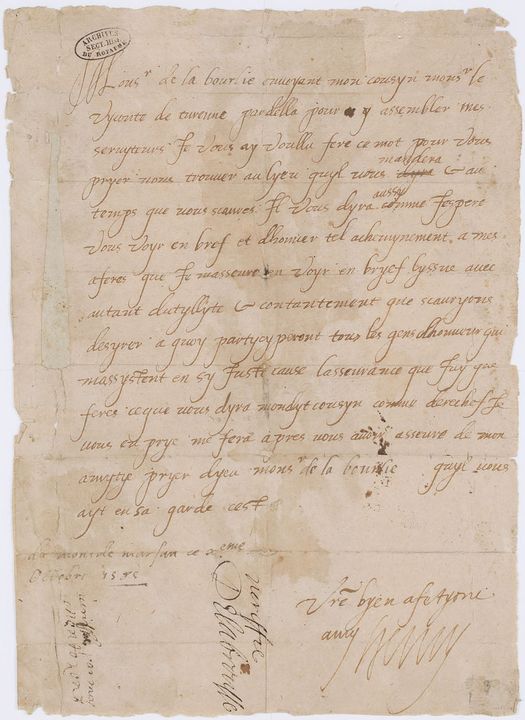 ARCHIVES
SECT. HIS.
DU ROYAUME
Monsr de la bourlie envoyant mon cousyn monsr le
vyconte de turenne pardella pour y assembler mes
servyteurs Je vous ay voullu fere ce mot pour vous
mandera
pryer vous trouver au lyeu quyl vous dyra & au
aussy
temps que vous saures Il vous dyra comme Jespere
vous voyr en bref et dhonner tel achemynement a mes
aferes que Je masseure en voyr en bryef lyssue avec
autant dutyllyte & contantement que scauryons
desyrer a quoy partycyperont tous les gens dhonneur quy
massystent en sy Juste cause lasseurance que Jay que
feres ce que vous dyra mondyt cousyn comme derechef Je
vous en prye me fera apres vous avoyr asseure de mon
amytye pryer dyeu monsr de la bourlie quyl vous
ayt en sa garde cest
du mont de marsan ce xeme
Octobre 1585
Vre byen afetyone
amy Henry